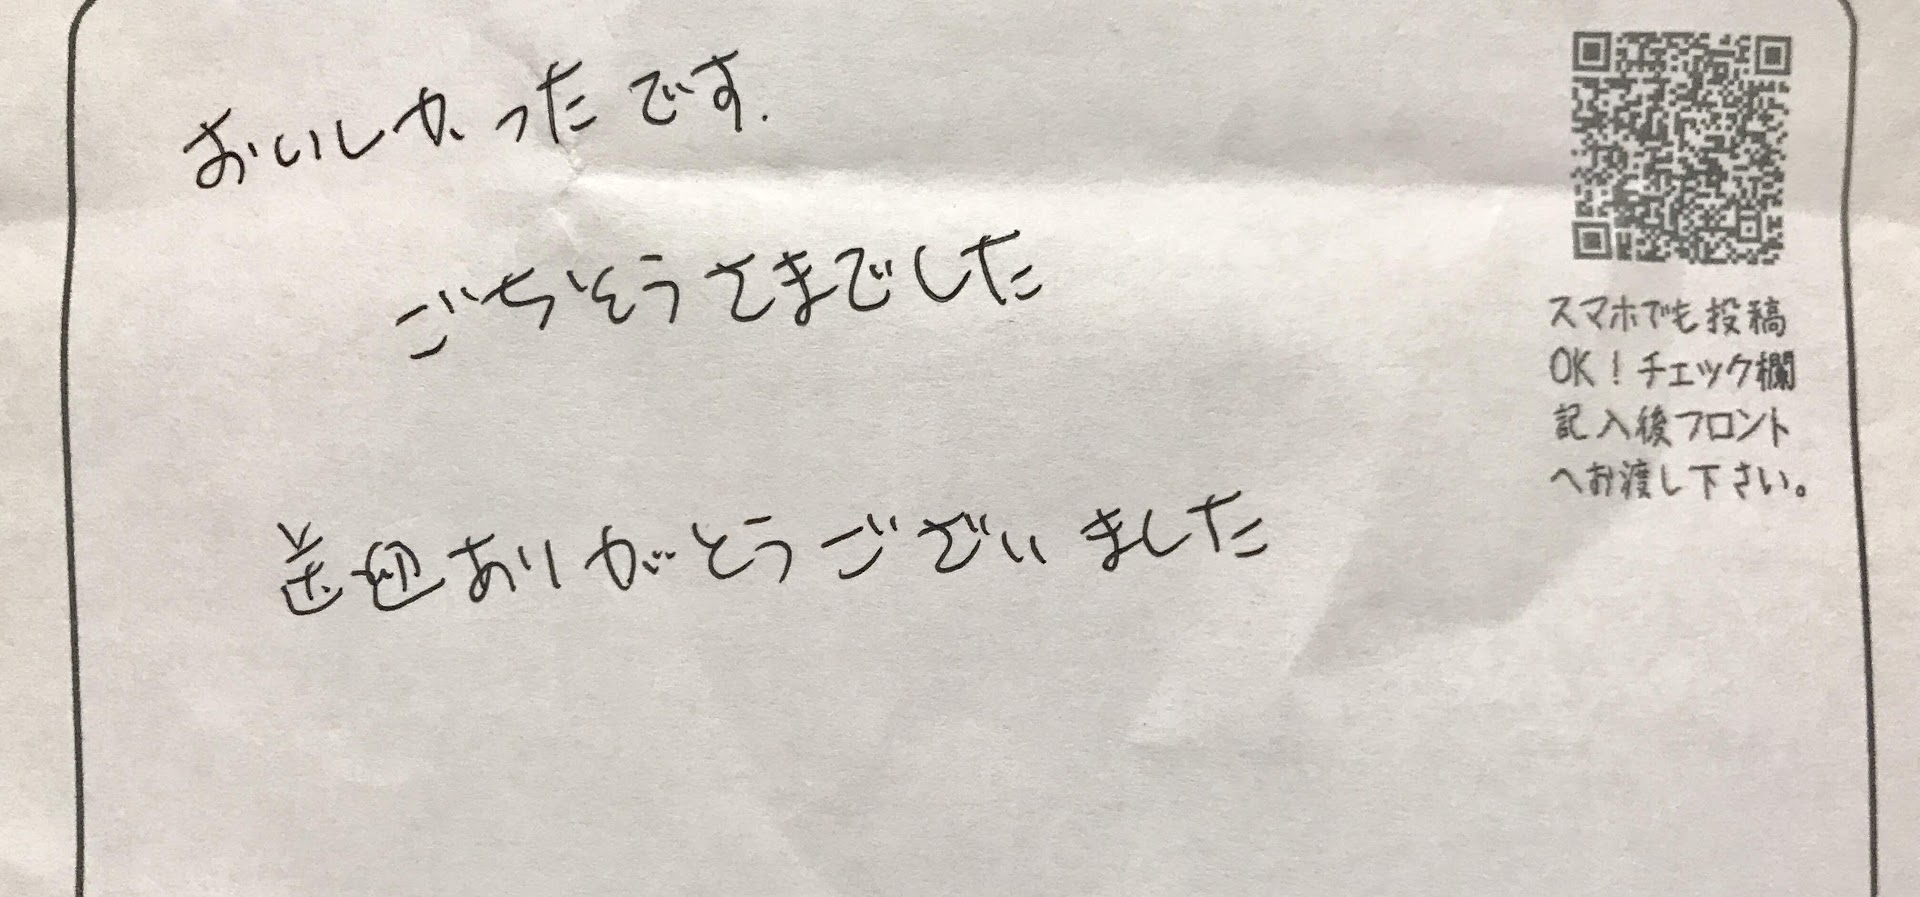 おいしかったです.
ごちそうさまでした
送迎ありがとうございました
スマホでも投稿
OK！チェック欄
記入後フロント
へお渡し下さい。